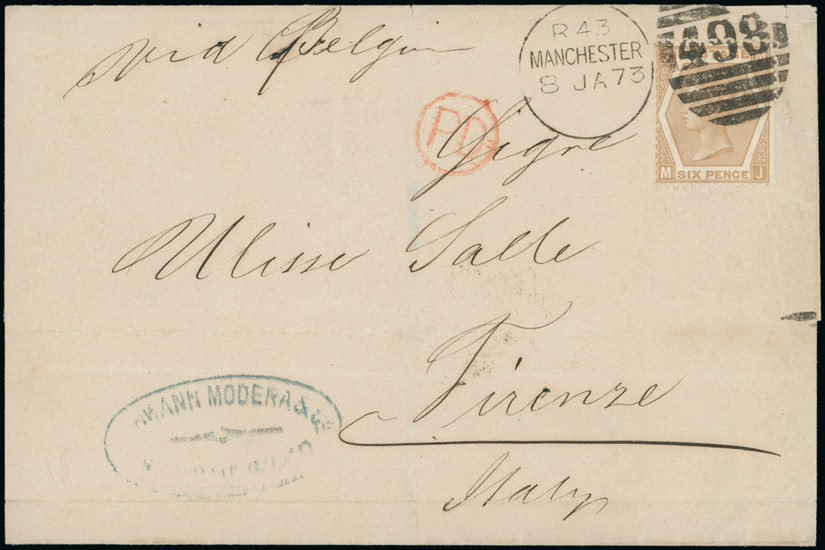 via Belgium
R 43
MANCHESTER
8 JA 73
498
PD
M SIX PENCE J
Sigre
Ulisse Salle
Firenze
Italy
MANN MODERA & Co